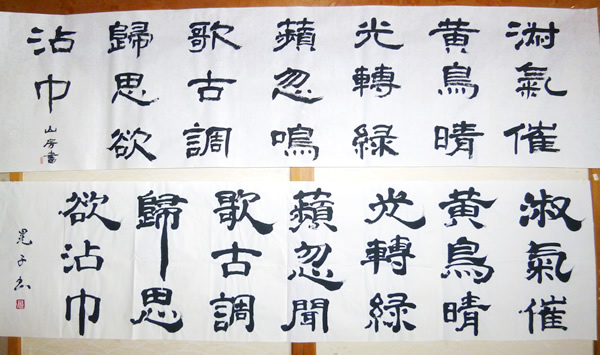 淑氣催
黄鳥晴
光轉緑
蘋忽鳴
歌古調
歸思欲
沾巾
山房書
淑氣催
黄鳥晴
光轉緑
蘋忽聞
歌古調
歸思
欲沾巾